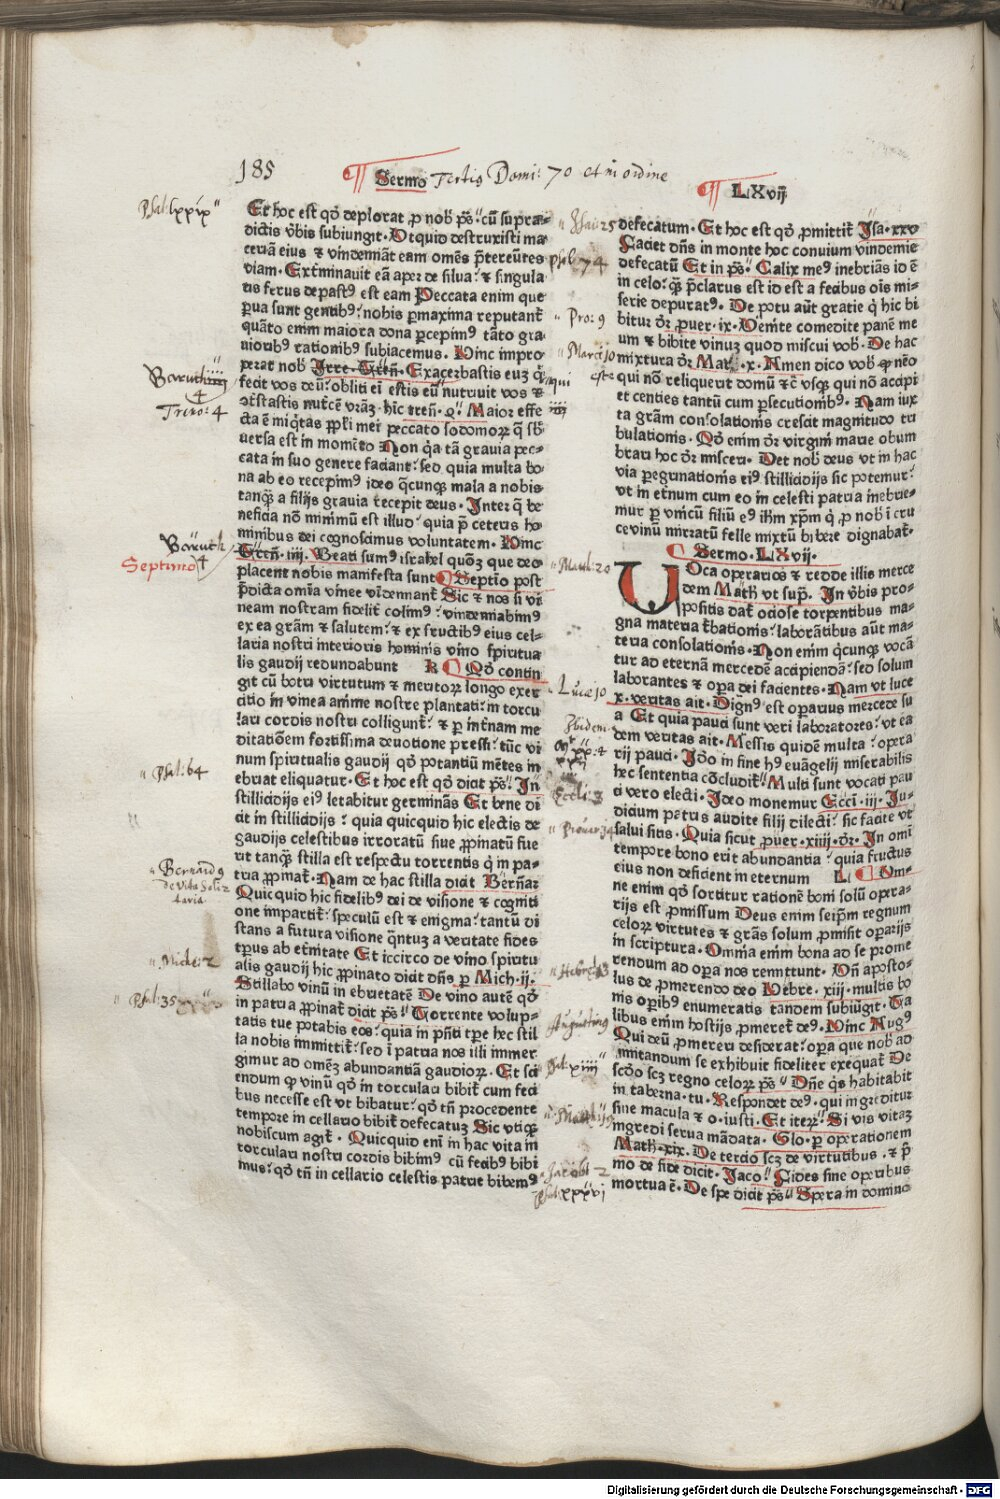 185
Sermo Tertiꝰ Domi: 70 et in ordine
LXvij
Psal: lxxix
Et hoc est qđ deplorat ꝓ nob̄ ps̄. cū supra-
dictis v̄bis subiungit. Vtquid destruxisti ma
ceriā eius & vindemiāt eam omēs p̄tereūtes
viam. Extminauit eā aper de silua: & singula
ris ferus depastꝰ est eam Peccata enim que
ꝑua sunt gentibꝰ: nobis ꝑmaxima reputant̄
quāto enim maiora dona ꝑcepimꝰ tāto gra
uioribꝰ rationibꝰ subiacemus. Hinc impro
perat nob̄ Jere. Tren̄. Exacerbastis euʒ q̄
fecit vos deū: obliti eī estis eū nutruit vos &
cta ē miq̄tas ppl̄i mei peccato sodomoꝝ q̄ sb̄
uersa est in momēto Non q̄a tā grauia pec-
cata in suo genere faciant: sed quia multa bo
na ab eo recepimꝰ ideo q̄cunqꝫ mala a nobis
tanqꝫ a filijs grauia recepit deus. Inter q̄ be
neficia nō minimū est illud: quia p̄ ceteris ho
minibus dei cognoscimus voluntatem. Hinc
Tren̄. iiij. Beati sumꝰ israhel quōʒ que deo
placent nobis manifesta sunt Septīo post
p̄dicta omīa vinee vīdemiant̄ Sic & nos si vi
neam nostram fidelit̄ colimꝰ: vindemiabimꝰ
ex ea grām & salutem: & ex fructibꝰ eius cel-
laria nostri interioris hominis vino spiritua
lis gaudij redundabunt K Qđ contin
git cū botri virtutum & meritoꝝ longo exer
citio in vinea anime nostre plantati: in torcu
lari cordis nostri colligunt̄: & ꝑ int̄nam me
ditatiōem fortissima deuotione pressi: tūc vi
num spiritualis gaudij qđ potantiū mētes in
ebriat eliquatur. Et hoc est qđ dicit ps̄. In
stillicidijs eiꝰ letabitur germināns Et bene di
cit in stillicidijs: quia quicquid hic electis de
gaudijs celestibus irroratū siue ꝓpinatū fue
rit tanqꝫ stilla est respectu torrentis q̄ in pa-
tria ꝓpinat̄. Nam de hac stilla dicit Bern̄ar
Quicquid hic fidelibꝰ dei de visione & cogniti
one impartit̄: speculū est & enigma: tantū di
stans a futura visione q̄ntuʒ a veritate fides
tꝑus ab et̄nitate Et iccirco de vino spiritu
alis gaudij hic ꝓpinato dicit dn̄s ꝑ Mich. ij.
Stillabo vinū in ebrietatē De vino autē qđ
in patria ꝓpinat̄ dicit ps̄. Torrente volup-
tatis tue potabis eos: quia in pn̄ti tꝑe hec stil
la nobis immittit̄: sed ī patria nos illi immer
gimur ad omēʒ abundantiā gaudioꝝ. Et sci
endum qꝫ vinū qđ in torculari bibit̄ cum feci
bus necesse est vt bibatur: qđ tn̄ procedente
tempore in cellario bibit̄ defecatuʒ Sic vtiqꝫ
nobiscum agit̄. Quicquid enī in hac vita in
torculari nostri cordis bibimꝰ cū fecibꝰ bibi
mus: qđ tn̄ in cellario celestis patrie bibemꝰ
Baruch 4
Treno: 4
Baruch 4
Septimo
Psal: 64
Bernardꝰ
de Vita Solitaria
Micheę 2
Psal: 35
Esai 25
psal: 74
Pro: 9
Marci 10
Math: 20
Lucę 10
Ibidem
Eccli: 3
Prouer: 14
Hebre: 13
Augustinꝰ
Psal: xiiii
Math: 19
Jacobi 2
Psal: xxxvi
defecatum. Et hoc est qđ ꝓmittit̄ Jsa. xxv
Faciet dn̄s in monte hoc conuium vindemie
defecatū Et in ps̄. Calix meꝰ inebriās id ē
in celo: qꝫ p̄clarus est id est a fecibus oīs mi-
serie depuratꝰ. De potu aūt gratie q̄ hic bi
bitur dr̄ ꝓuer. ix. Venite comedite panē me
um & bibite vinuʒ quod miscui vob̄. De hac
mixtura dr̄ Mar. x. Amen dico vob̄ qꝫ nēo
qui nō reliquerit domū &c̄ vsqꝫ qui nō accipi
et centies tantū cum ꝑsecutionibꝰ. Nam iux
ta grām consolationis crescit magnitudo tri
bulationis. Qđ enim dr̄ virgini marie obum
brari hoc dr̄ misceri. Det nob̄ deus vt in hac
via ꝑegrinationis eiꝰ stillicidijs sic potemur:
vt in et̄num cum eo in celesti patria inebrie-
mur ꝑ vnicū filiū eꝰ ih̄m xp̄m q̄ ꝓ nob̄ ī cru
ce vinū mirratū felle mixtū bibere dignabat̄.
Sermo. LXvij.
VOca operarios & redde illis merce
dem Math vt sup̄. In v̄bis pro-
positis dat̄ ociose torpentibus ma-
gna materia t̄bationis: laborātibus aūt ma-
teria consolationis. Non enim q̄cunqꝫ vocā
tur ad eternā mercedē accipiendā: sed solum
laborantes & oꝑa dei facientes. Nam vt luce
x. veritas ait. Dignꝰ est operarius mercede su
a Et quia pauci sunt veri laboratores: vt ea
dem veritas ait. Messis quidē multa: opera
rij pauci. Jdo in fine hꝰ euāgelij miserabilis
hec sententia cōcludit̄. Multi sunt vocati pau
ci vero electi. Jdeo monemur Ecci. iij. Ju-
dicium patris audite filij dilecti: sic facite vt
salui sitis. Quia sicut ꝓuer. xiiij. dr̄. In omī
tempore bono erit abundantia: quia fructus
eius non deficient in eternum L Om-
ne enim qđ sortitur rationē boni solū opera-
rijs est ꝓmissum Deus enim seip̄m regnum
celoꝝ virtutes & grās solum ꝓmisit oꝑarijs
in scriptura. Omnia enim bona ad se prome
rendum ad oꝑa nos remittunt. Vn̄ aposto-
lus de ꝓmerendo deo Hebre. xiij. multis bo
nis oꝑibꝰ enumeratis tandem subiūgit. Ta
libus enim hostijs ꝓmeret̄ deꝰ. Hinc Augꝰ
Qui deū ꝓmereri desiderat: oꝑa que nob̄ ad
imitandum se exhibuit fideliter exequat̄ De
scđo scʒ regno celoꝝ ps̄. Dn̄e q̄s habitabit
in taberna. tu. Respondet deꝰ. qui ingreditur
sine macula & o. iusti. Et iteꝝ. Si vis vitaʒ
ingredi serua mādata. Glo. ꝑ operationem
Math. xix. De tercio scʒ de virtutibus. & p̄
mo de fide dicit. Jaco. Fides sine oꝑibus
mortua ē. De spe dicit ps̄. Spera in domino
Digitalisierung gefördert durch die Deutsche Forschungsgemeinschaft - DFG